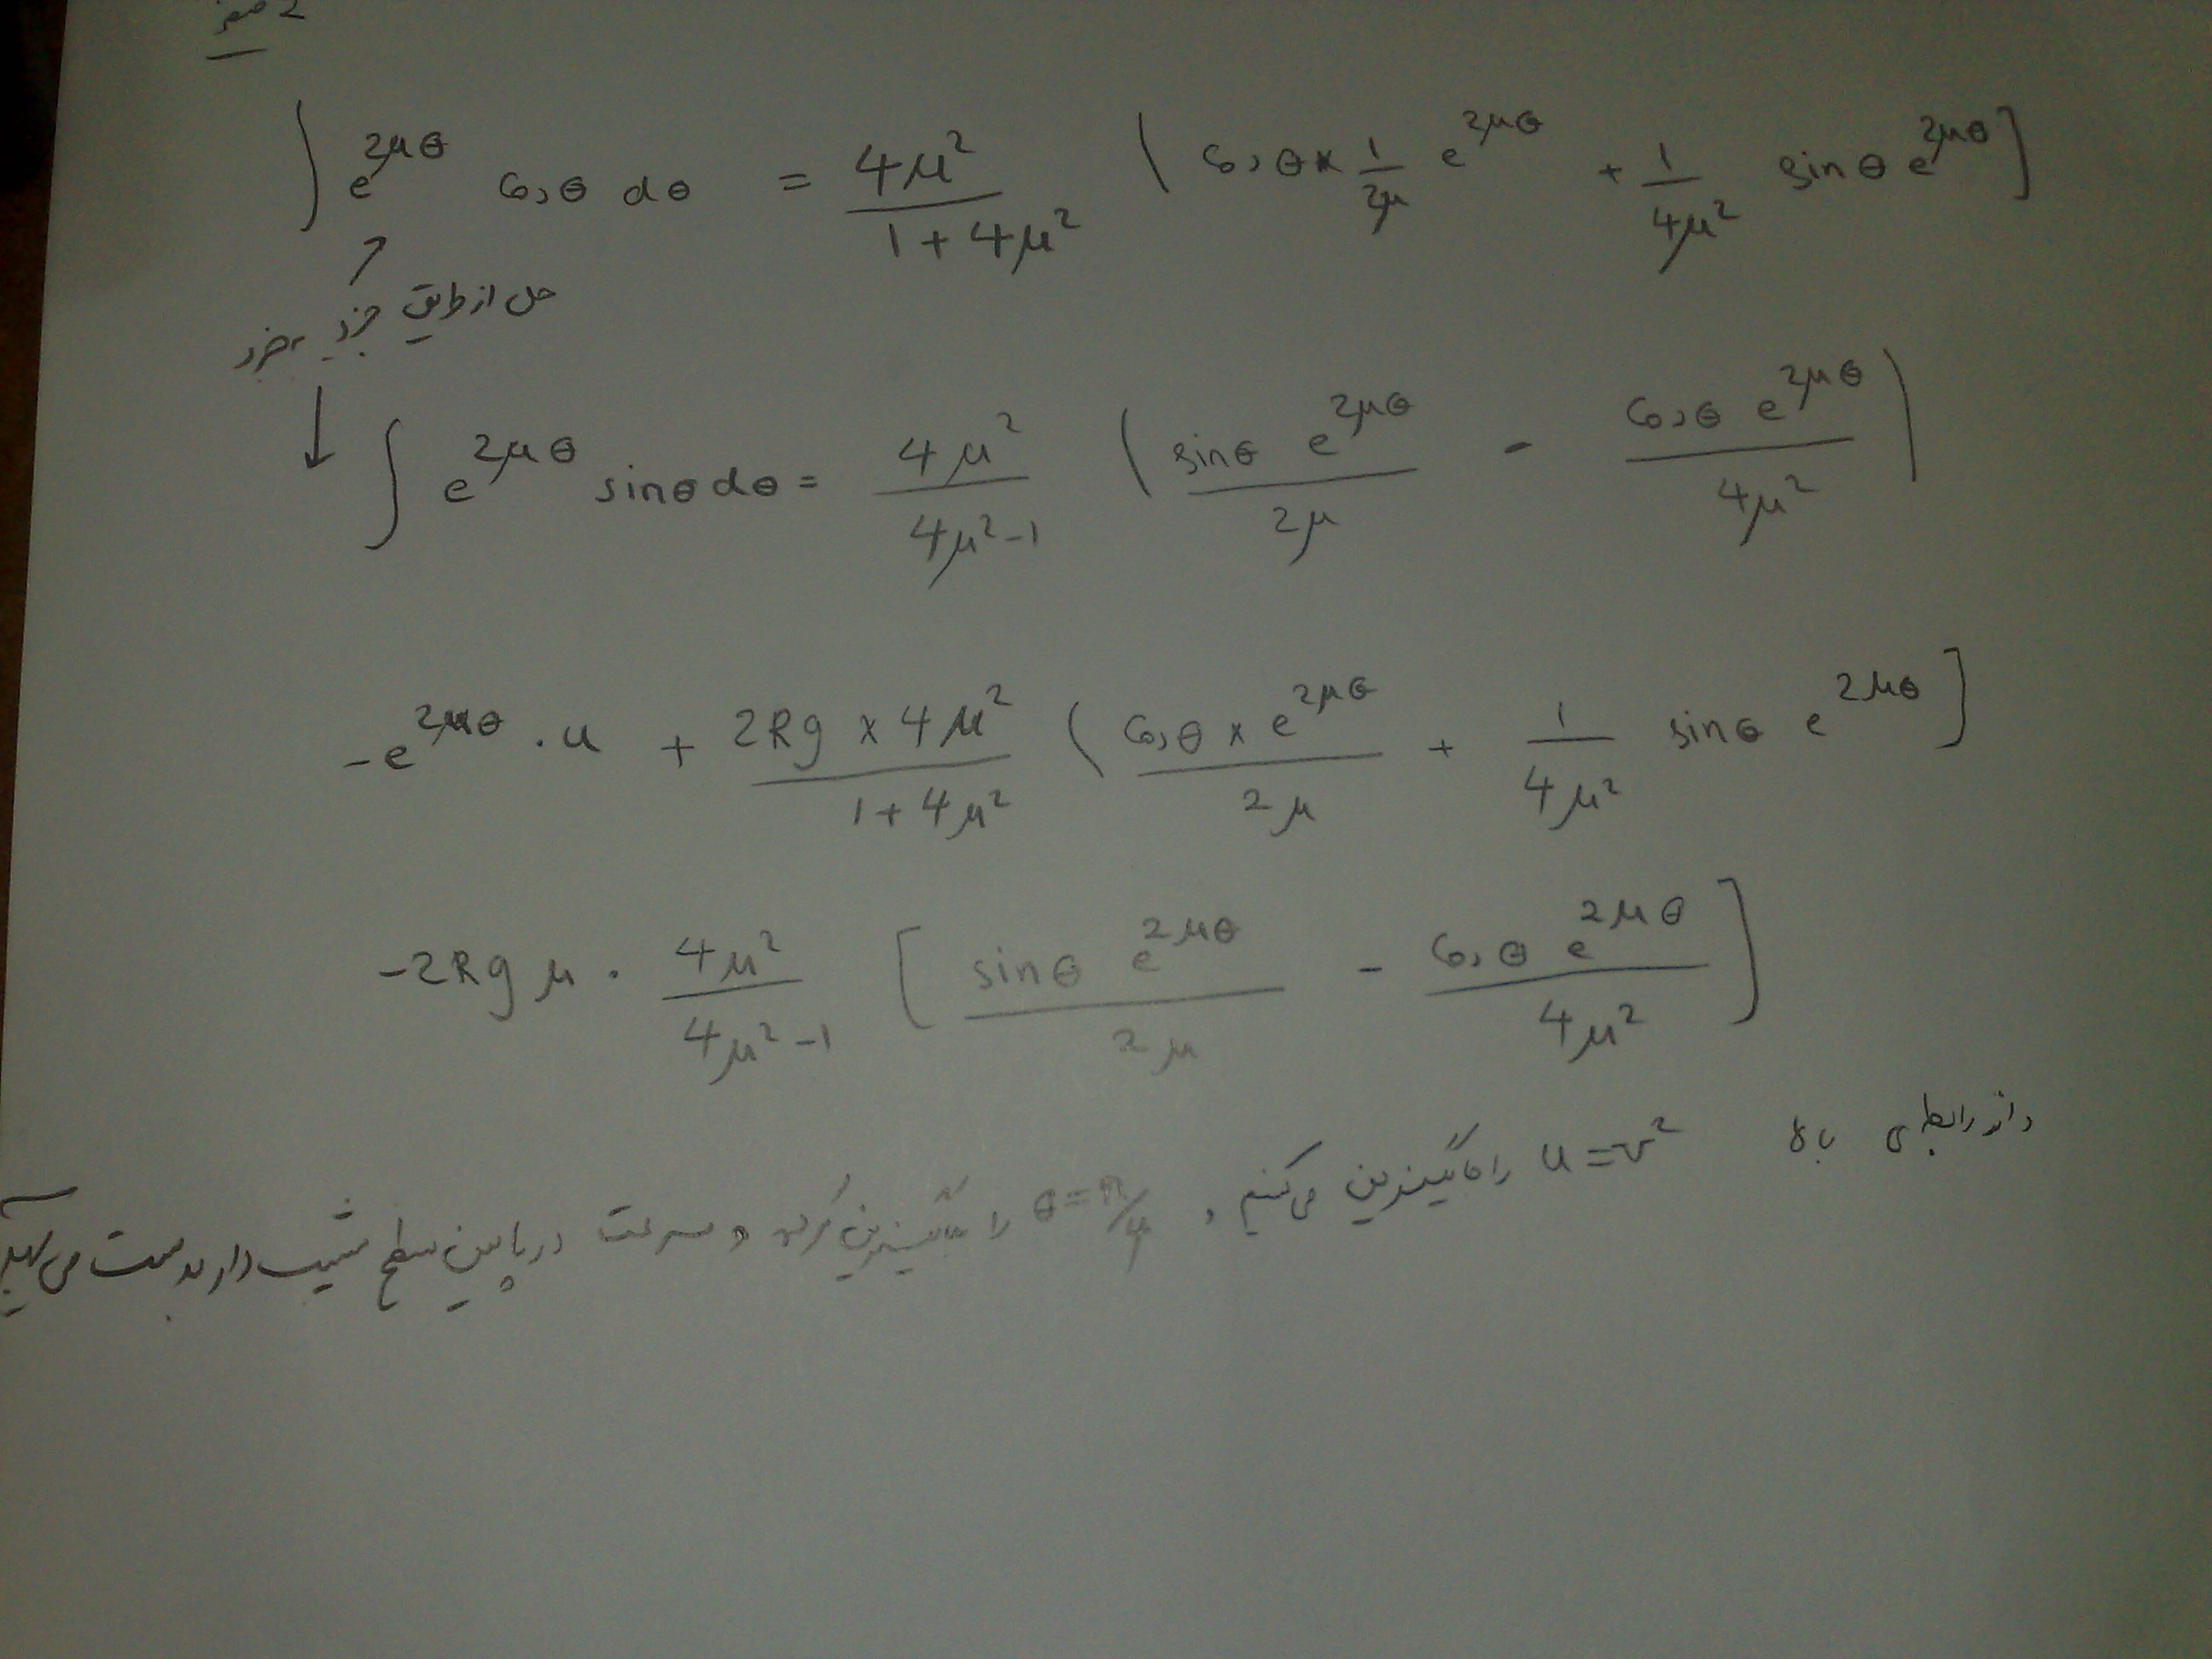 صفحه 2
∫ e^{2μθ} cosθ dθ = 4μ²/(1+4μ²) ( cosθ × 1/2μ e^{2μθ} + 1/4μ² sinθ e^{2μθ} ]
حل از طریق جزء بجزء
∫ e^{2μθ} sinθ dθ = 4μ²/(4μ²-1) ( sinθ e^{2μθ}/2μ - cosθ e^{2μθ}/4μ² )
-e^{2μθ} . u + 2Rg × 4μ²/(1+4μ²) ( cosθ × e^{2μθ}/2μ + 1/4μ² sinθ e^{2μθ} ]
-2Rgμ . 4μ²/(4μ²-1) [ sinθ e^{2μθ}/2μ - cosθ e^{2μθ}/4μ² ]
و از رابطه‌ی بالا u = v² را جایگزین می‌کنیم و θ = π/4 را جایگزین کرده و سرعت در پایین سطح شیب‌دار بدست می‌آید